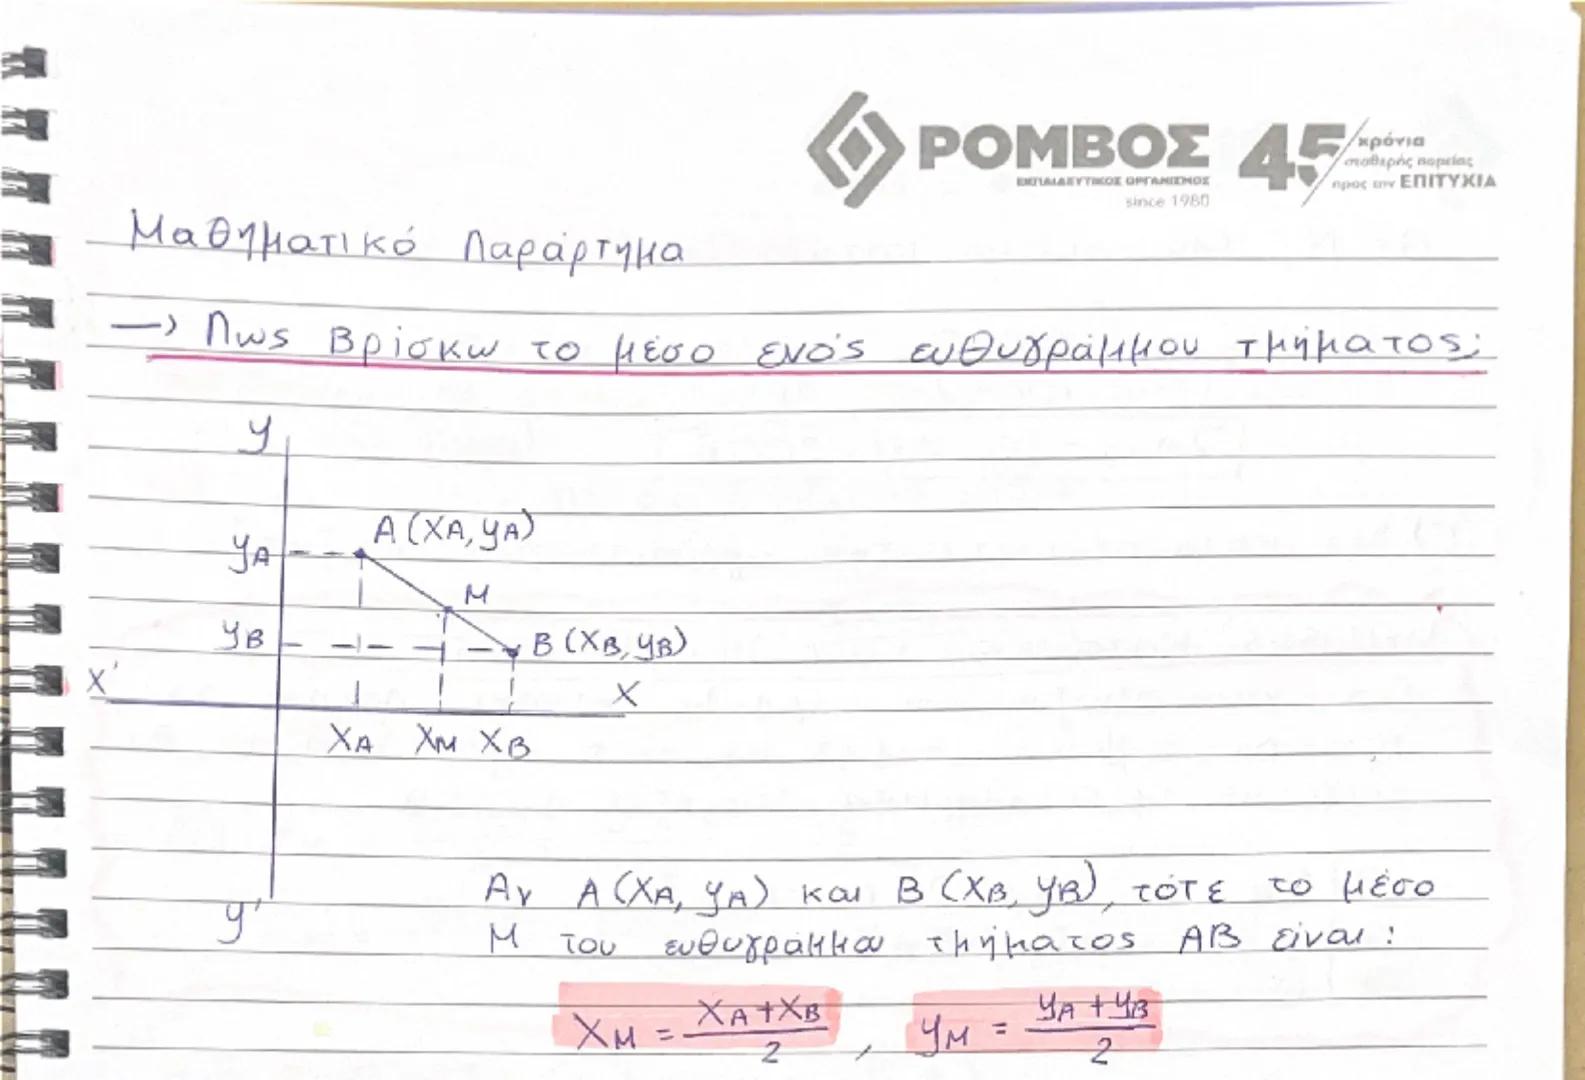 ΡΟΜΒΟΣ
ΕΚΠΑΙΔΕΥΤΙΚΟΣ ΟΡΓΑΝΙΣΜΟΣ
since 1980
45 χρόνια
σταθερής πορείας
προς την ΕΠΙΤΥΧΙΑ
Μαθηματικό Παράρτημα
→ Πως βρίσκω το μέσο ενός ευθυγράμμου τμήματος;
y
A (XA, yA)
yA
M
yB
B (XB, yB)
x'
x
XA XM XB
y'
Αν A (XA, yA) και B (XB, yB), τότε το μέσο
M του ευθυγράμμου τμήματος AB είναι:
XM = (XA + XB)/2 , yM = (yA + yB)/2